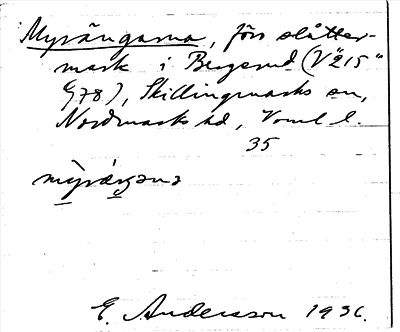 Myrängarna, förr slåtter-
mark i Bergerud (V²15
G78), Skillingmarks sn,
Nordmarks hd, Vrml l.
35
E. Andersson 1936.